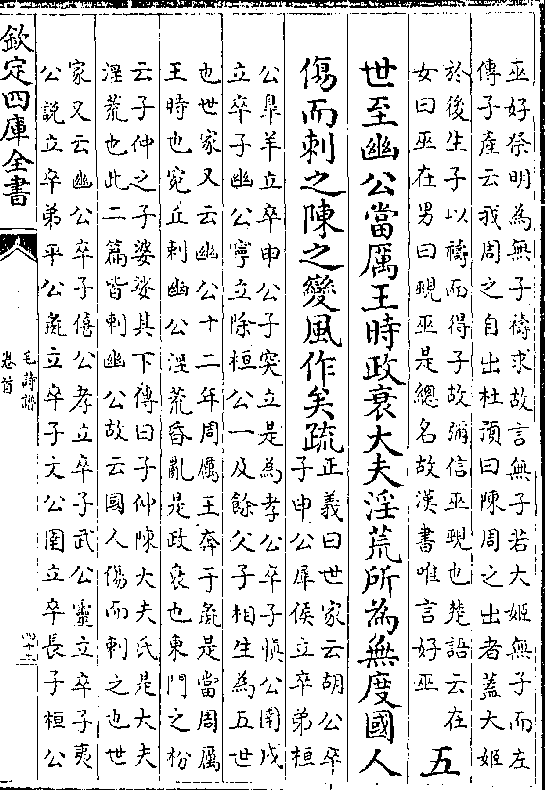 巫好祭明為無子禱求故言無子若大姬無子而左
傳子產云我周之自出杜湏曰陳周之出者蓋大姬
於後生子以禱而得子故彌信巫覡也楚語云在
女曰巫在男曰覡巫是總名故漢書唯言好巫
五
世至幽公當厲王時政衰大夫淫荒所為無度國人
傷而刺之陳之變風作矣疏
正義曰世家云胡公卒
子申公犀侯立卒弟桓
公臯羊立卒申公子突立是為孝公卒子慎公圉戎
立卒子幽公寧立除桓公一及餘父子相生為五世
也世家又云幽公十二年周厲王奔于彘是當周厲
王時也宛丘刺幽公淫荒昏亂是政衰也東門之枌
云子仲之子婆娑其下傳曰子仲陳大夫氏是大夫
淫荒也此二篇皆刺幽公故云國人傷而刺之也世
家又云幽公卒子僖公孝立卒子武公靈立卒子夷
公説立卒弟平公彘立卒子文公圉立卒長子桓公
欽定四庫全書
毛詩譜
卷首